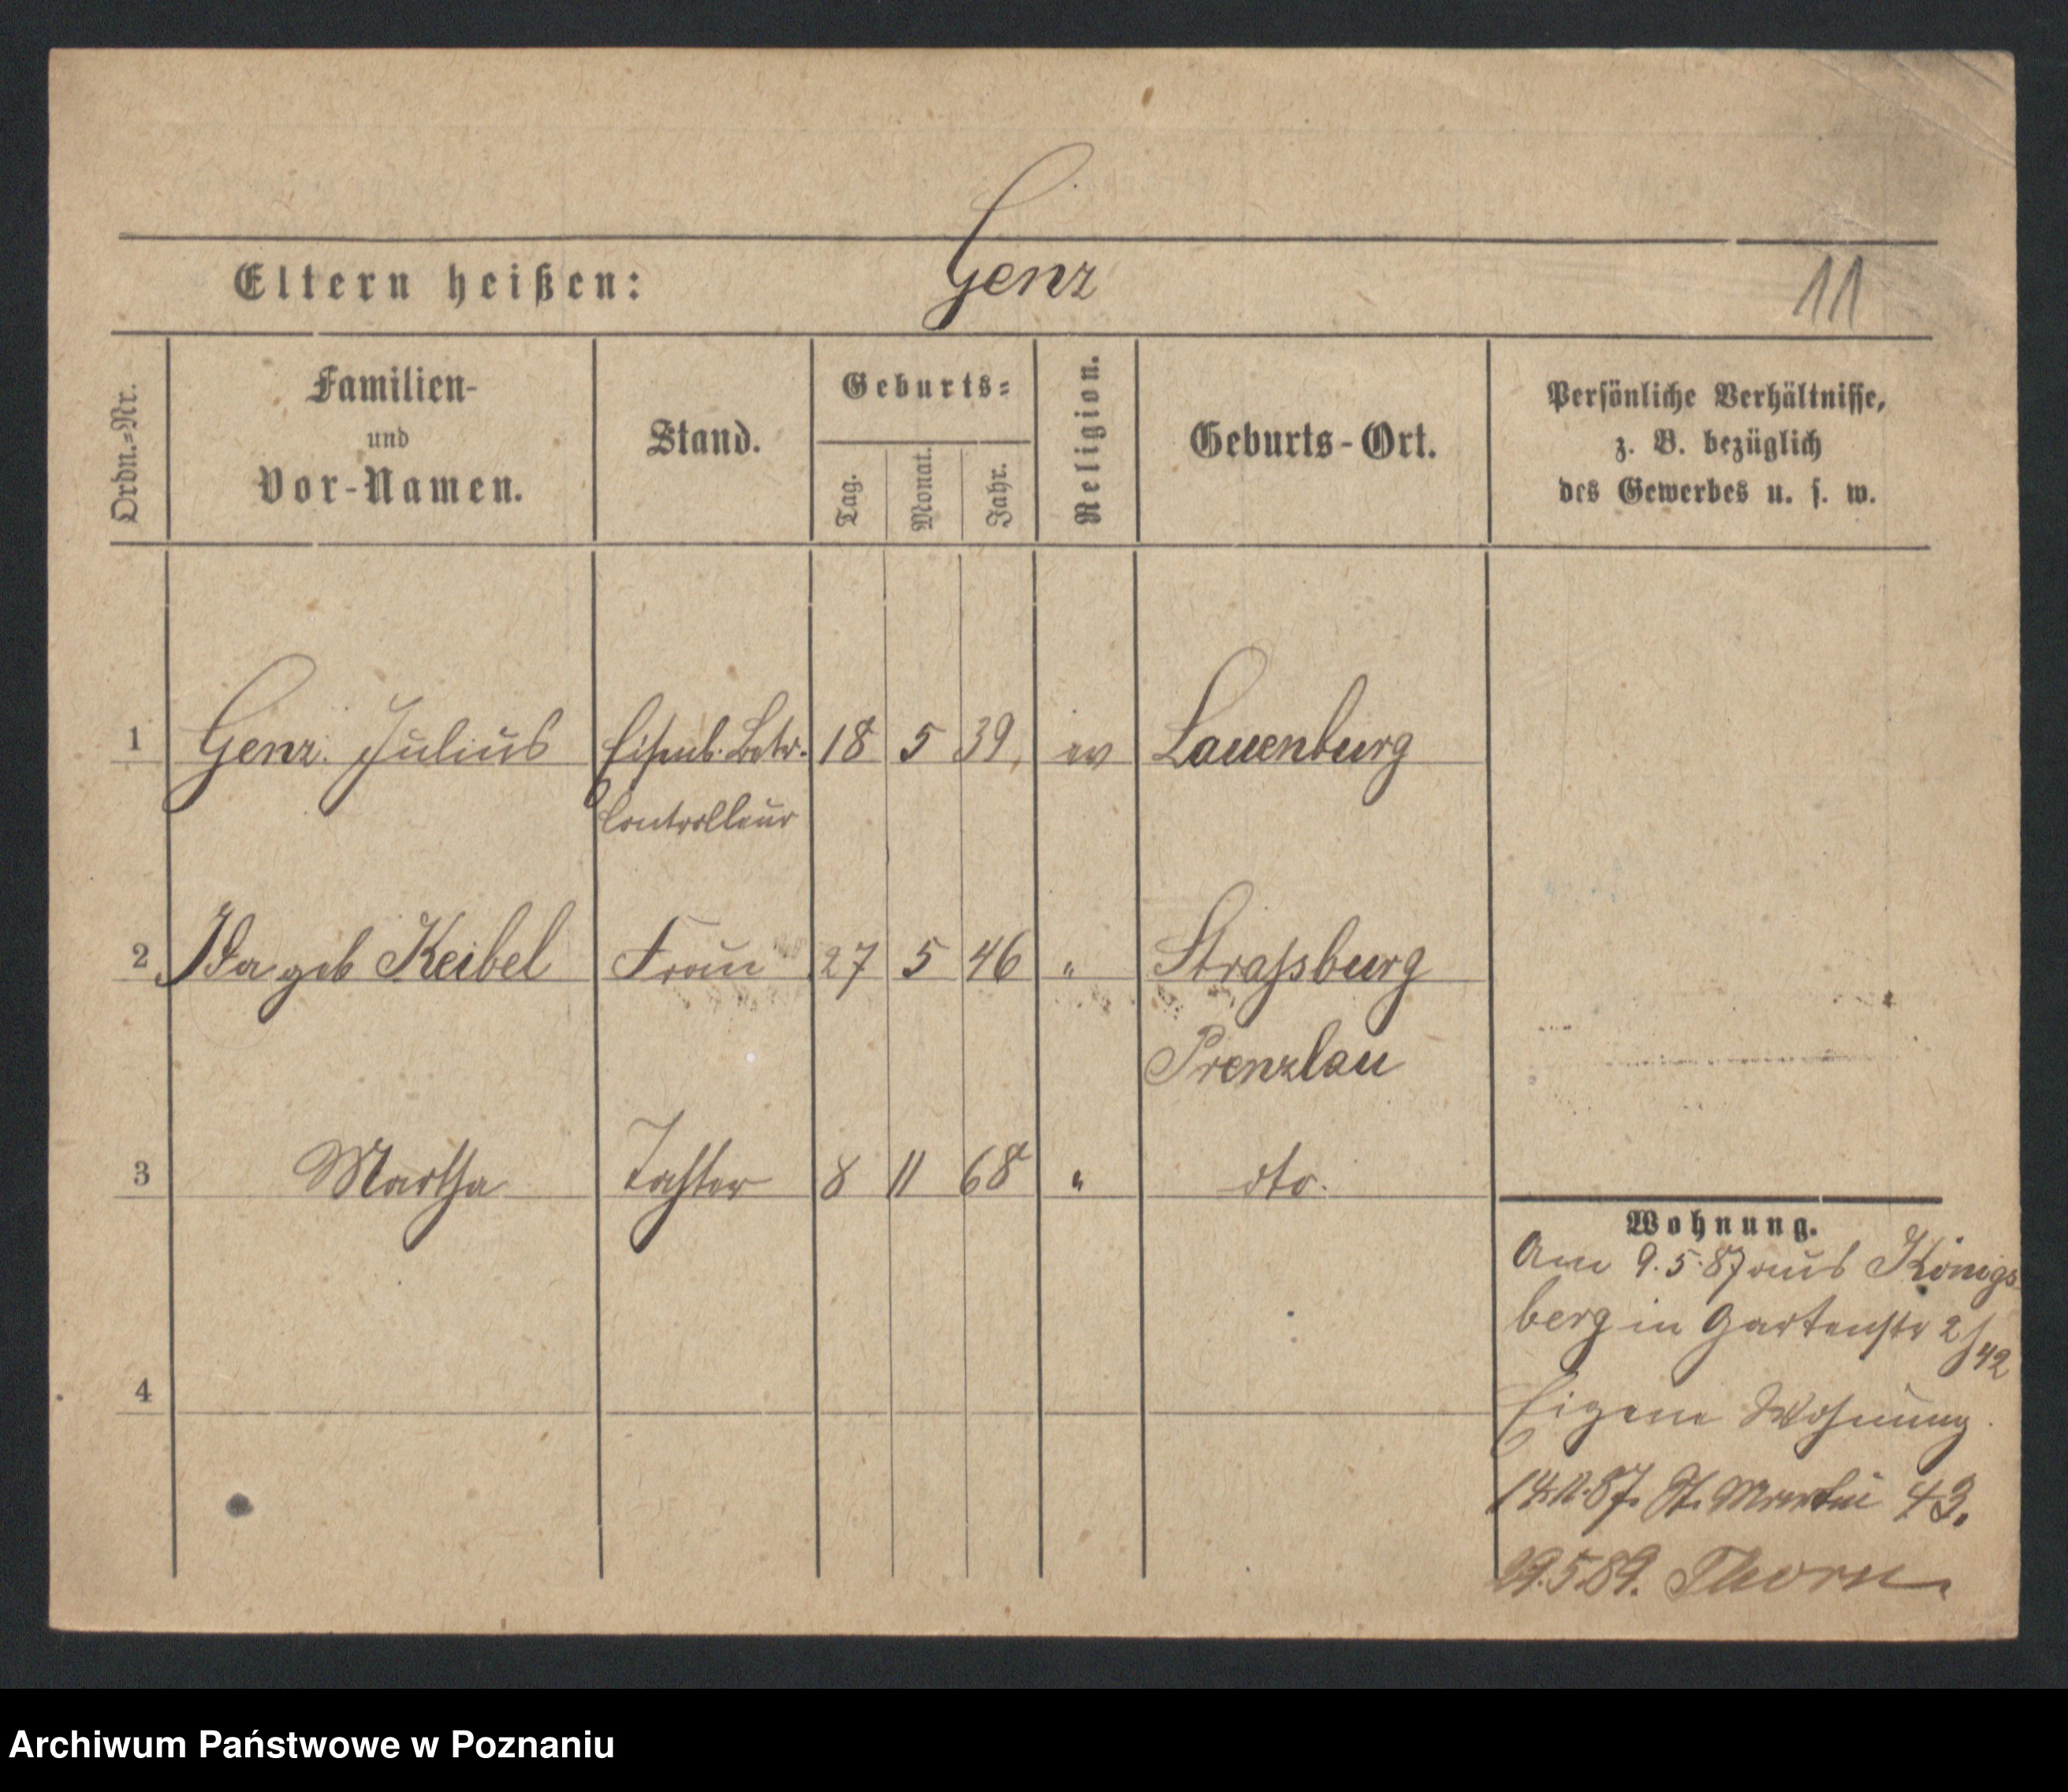 Genz
Eltern heißen:
11
Ordn.=Nr.
Familien-
und
Vor-Namen.
Stand.
Geburts=
Tag.
Monat.
Jahr.
Religion.
Geburts-Ort.
Persönliche Verhältnisse,
z. B. bezüglich
des Gewerbes u. s. w.
1 Genz. Julius Eisenb. Betr. 18 5 39 ev Lauenburg
Controlleur
2 Ida geb Keibel Frau 27 5 46 " Straßburg
Prenzlau
3 Martha Tochter 8 11 68 " dto.
4
Wohnung.
Am 9.5.87 aus Königs
berg in Gartenstr 2/42
Eigene Wohnung.
14.11.87. St. Martin 43.
29.5.89. Thorn
Archiwum Państwowe w Poznaniu